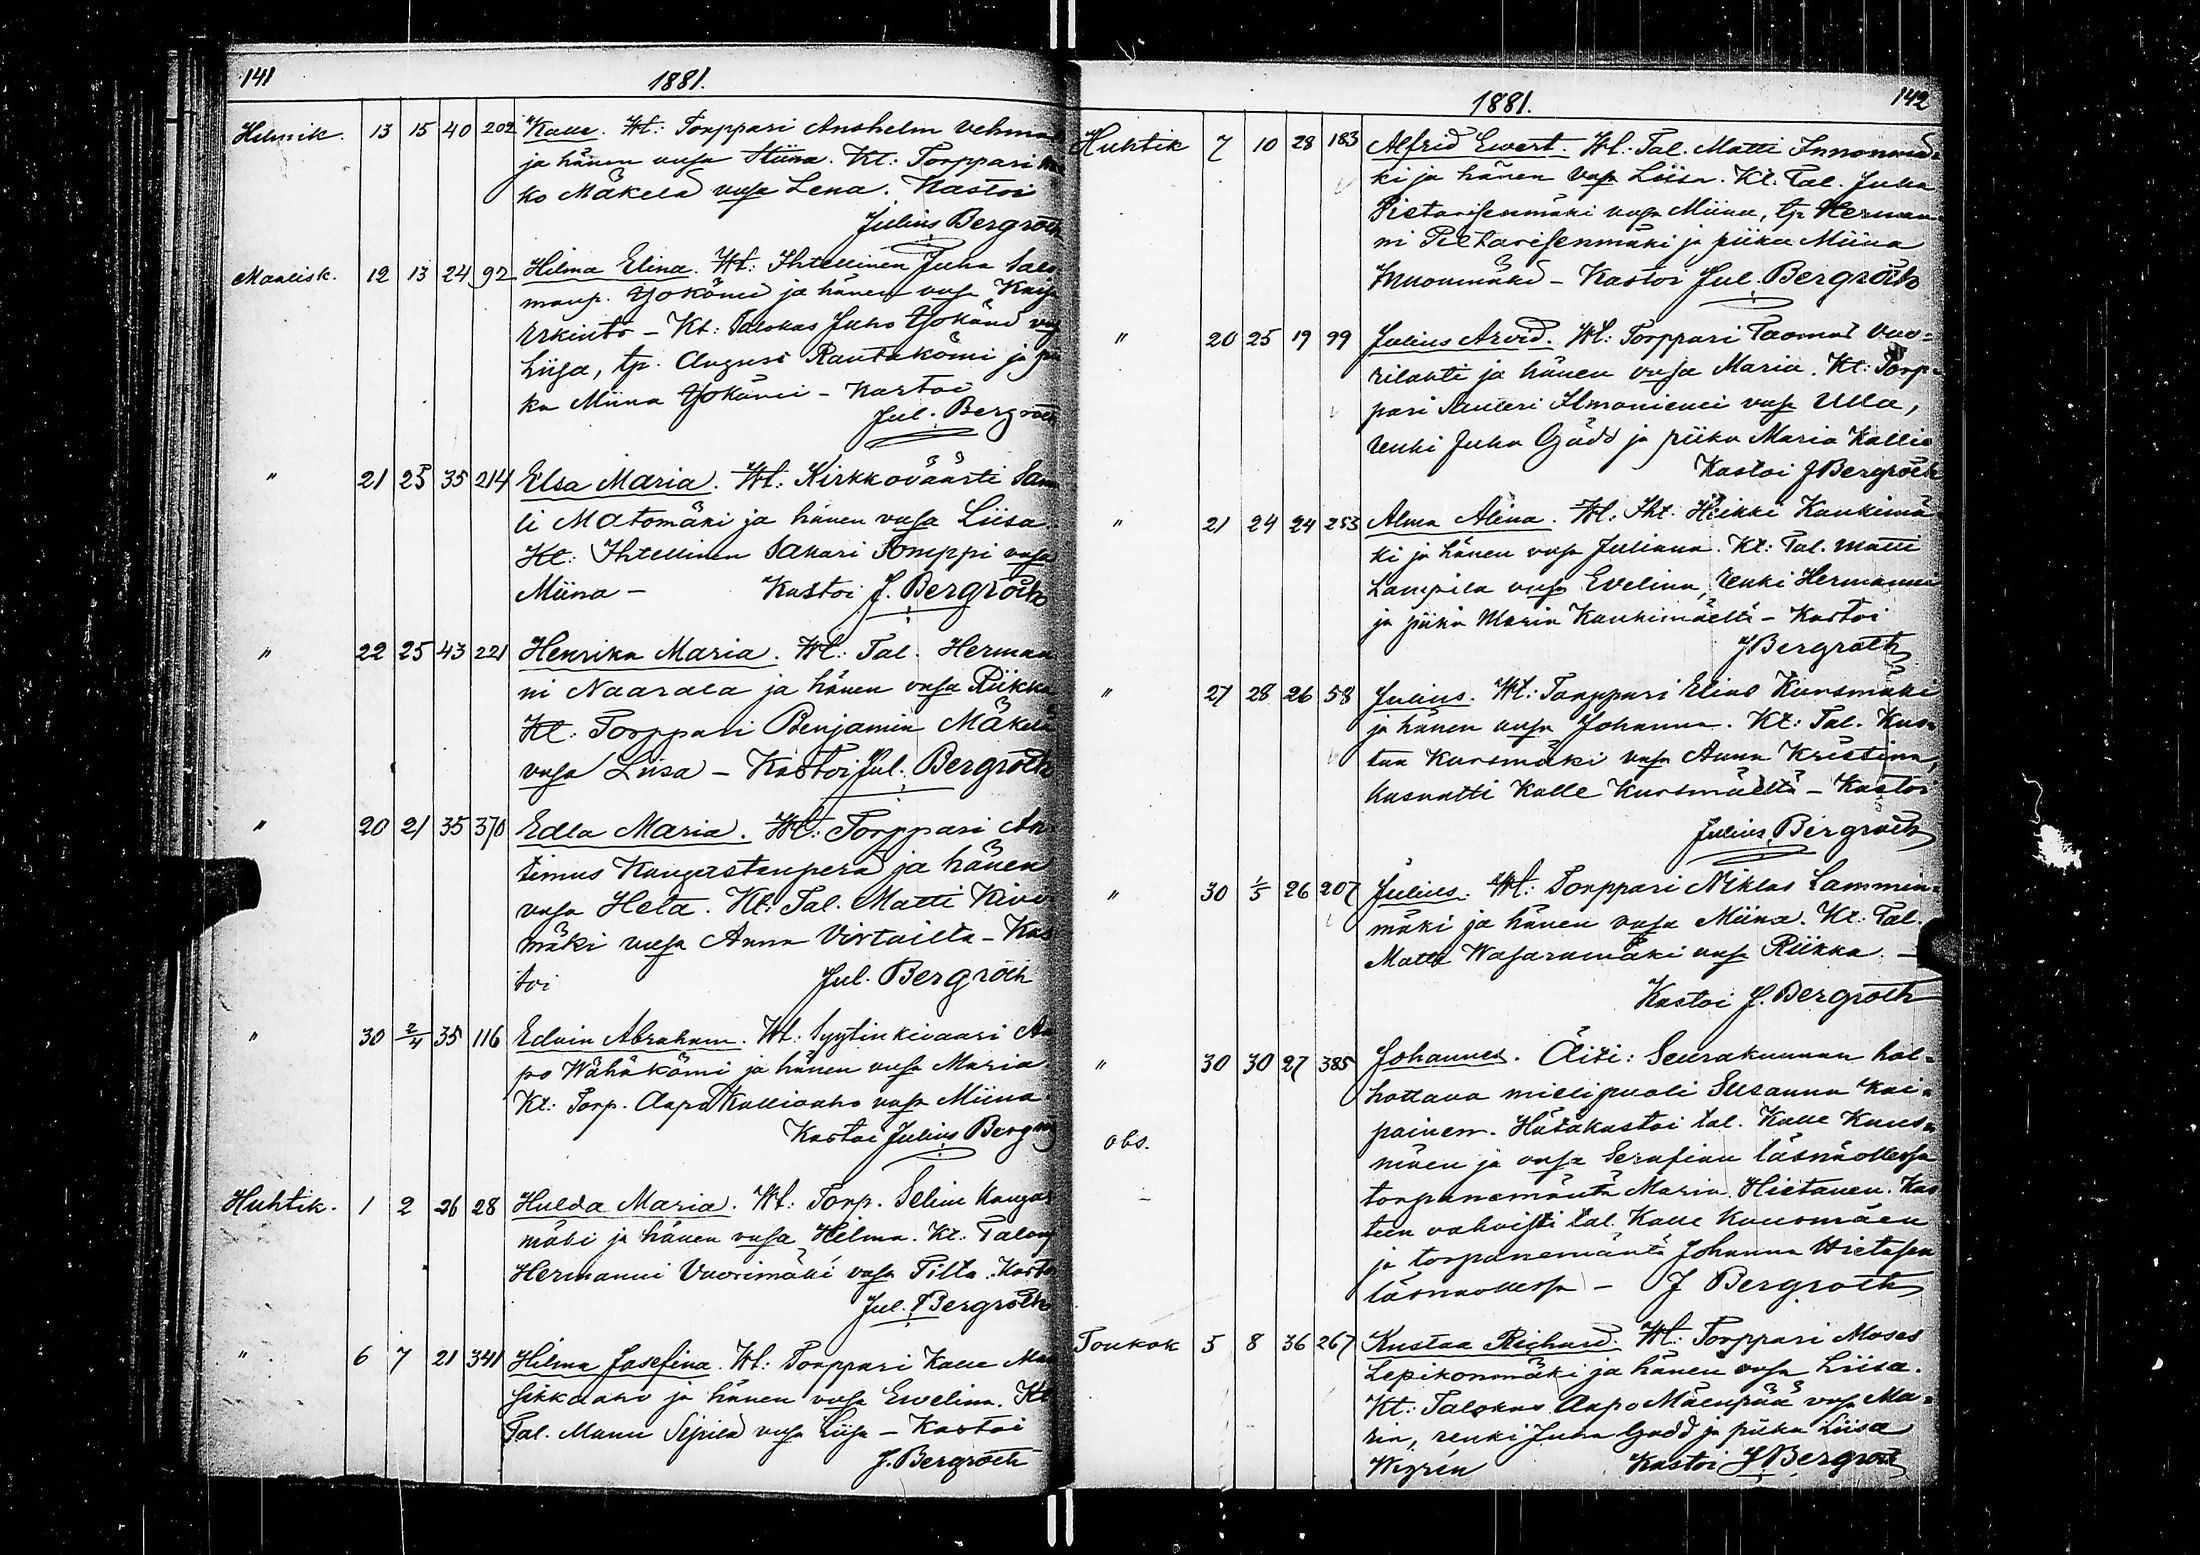 141
1881.
Helmik. 13 15 40 202 Kalle. Wt: Torppari Anshelm
ja hänen vmsa Stiina. Kt: Torppari
ko Mäkelä vmsa Lena. Kastoi
Julius Bergroth
Maalisk. 12 13 24 92 Hilma Elina. Wt: Ihtellinen Juha
ja hänen vmsa
Kt: Talokas Juho
Liisa, tp. August Rautakömi ja
ka Miina - Kastoi
Jul. Bergroth
" 21 25 35 214 Elsa Maria. Wt: Kirkkoväärti Sam
li Matomäki ja hänen vmsa Liisa.
Kt: Ihtellinen Sakari Somppi vmsa
Miina - Kastoi J. Bergroth
" 22 25 43 221 Henrika Maria. Wt: Tal. Herman
ni Naarala ja hänen vmsa Riikka
Kt: Torppari Benjamin Mäkelä
vmsa Liisa - Kastoi Jul. Bergroth
" 20 21 35 370 Edla Maria. Wt: Torppari An
timus ja hänen
vmsa Heta. Kt: Tal. Matti Kivi
mäki vmsa Anna - Kas
toi Jul. Bergroth
" 30 2/4 35 116 Edvin Abraham. Wt: Syytinkivaari Aa
po Wähäkömi ja hänen vmsa Maria
Kt: Torp. Aapo Kallioaho vmsa Miina
Kastoi Julius Berg
Huhtik. 1 2 26 28 Hulda Maria. Wt: Torp. Selim Kangas
mäki ja hänen vmsa Hilma. Kt: Talon
Hermanni Vuorimäki vmsa Tilta. Kastoi
Jul. Bergroth
" 6 7 21 341 Hilma Josefina. Wt: Torppari Kalle
ja hänen vmsa Ewelina. Kt
Tal. Manu Sipilä vmsa Liisa - Kastoi
J. Bergroth
1881.
142
Huhtik 7 10 28 183 Alfrid Ewert. Wt: Tal. Matti
ki ja hänen vmsa Liisa. Kt: Tal. Juha
Pietarisenmäki vmsa Miina, tp Herman
ni Pietarisenmäki ja piika Miina
- Kastoi Jul. Bergroth
" 20 25 19 99 Julius Arvid. Wt: Torppari Taomas Vuo=
rilahti ja hänen vmsa Maria. Kt: Torp=
pari Ilmoniemi vmsa Ulla,
renki Juha Gädd ja piika Maria Kallio
Kastoi J Bergroth
" 21 24 24 253 Alma Alina. Wt: Iht. Heikki Kankimä
ki ja hänen vmsa Juliana. Kt: Tal. Matti
Lampila vmsa Evelina, renki Hermanni
ja piika Maria Kankimäeltä - Kastoi
J Bergroth
" 27 28 26 58 Julius. Wt: Torppari Elias Kuusmäki
ja hänen vmsa Johanna. Kt: Tal. Kus=
taa Kuusmäki vmsa Anna Kristina,
Kalle Kuusmäeltä - Kastoi
Julius Bergroth
" 30 1/5 26 207 Julius. Wt: Torppari Niklas Lammin=
mäki ja hänen vmsa Miina. Kt: Tal.
Matti Wasaramäki vmsa Riikka. -
Kastoi J. Bergroth
" 30 30 27 385 Johannes. Äiti: Seurakunnan hol=
hottava mielipuoli Susanna Kai=
painen. Hätäkastoi tal. Kalle Kuus=
obs. mäen ja vmsa Serafina läsnäollessa
torpanemäntä Maria Hietanen. Kas
teen vahvisti tal. Kalle Kuusmäen
ja torpanemäntä Johanna Hietasen
läsnäollessa - J Bergroth
Toukok 5 8 36 267 Kustaa Richard. Wt: Torppari Moses
Lepikonmäki ja hänen vmsa Liisa.
Kt: Talokas Aapo Mäenpää vmsa Ma=
ria, renki Juha Gadd ja piika Liisa
Kastoi J Bergroth